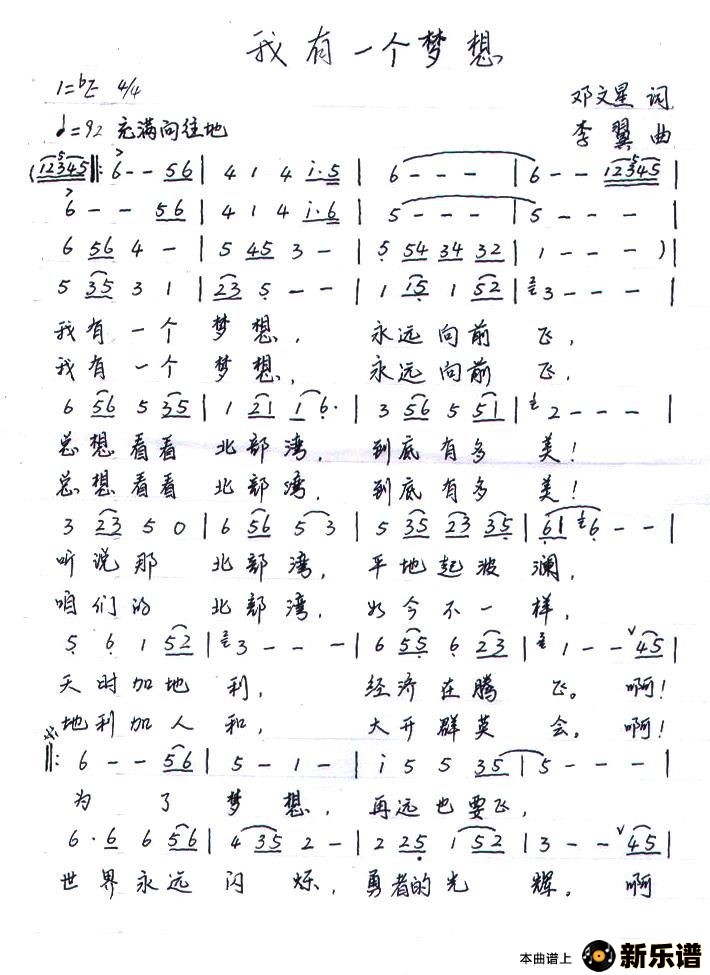 我有一个梦想
1=♭E 4/4
邓文星 词
♩=92 充满向往地
李翼 曲
(12345 ‖: 6 - - 56 | 4 1 4 i·5 | 6 - - - | 6 - - 12345 |
6 - - 56 | 4 1 4 i·6 | 5 - - - | 5 - - - |
6 56 4 - | 5 45 3 - | 5 54 34 32 | 1 - - - ) |
5 35 3 1 | 23 5 - - | 1 15 1 52 | 3 - - - |
我有一个梦想, 永远向前飞,
我有一个梦想, 永远向前飞,
6 56 5 35 | 1 21 1 6· | 3 56 5 51 | 2 - - - |
总想看看北部湾, 到底有多美!
总想看看北部湾, 到底有多美!
3 23 5 0 | 6 56 5 3 | 5 35 23 35 | 61 6 - - |
听说那北部湾, 平地起波澜,
咱们的北部湾, 如今不一样,
5 6 1 52 | 3 - - - | 6 55 6 23 | 1 - - 45 |
天时加地利, 经济在腾飞。啊!
地利加人和, 大开群英会。啊!
‖: 6 - - 56 | 5 - 1 - | i 5 5 35 | 5 - - - |
为了梦想, 再远也要飞,
6·6 6 56 | 4 35 2 - | 2 25 1 52 | 3 - - 45 |
世界永远闪烁, 勇者的光辉。啊
本曲谱上 新乐谱